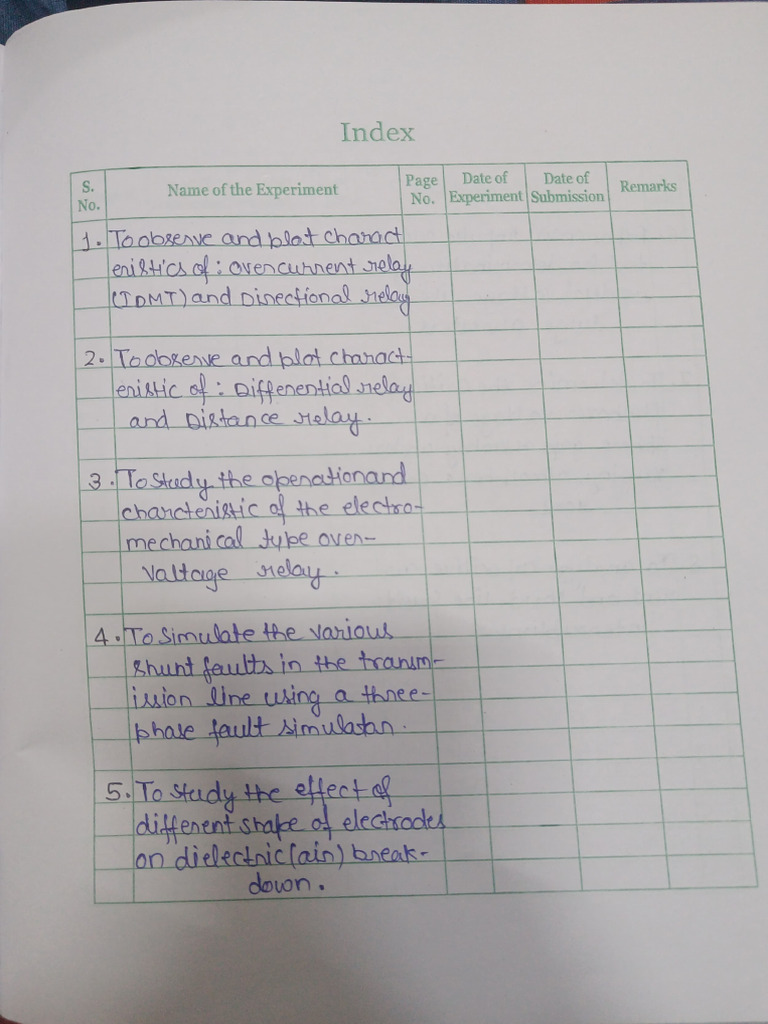 Index
S. No. Name of the Experiment Page No. Date of Experiment Date of Submission Remarks
1. To observe and plot charact
eristics of : overcurrent relay
(IDMT) and Directional relay
2. To observe and plot charact-
eristic of : Differential relay
and Distance relay.
3. To study the operation and
charcteristic of the electro-
mechanical type over-
voltage relay.
4. To simulate the various
shunt faults in the transm-
ission line using a three-
phase fault simulator.
5. To study the effect of
different shape of electrodes
on dielectric (air) break-
down.